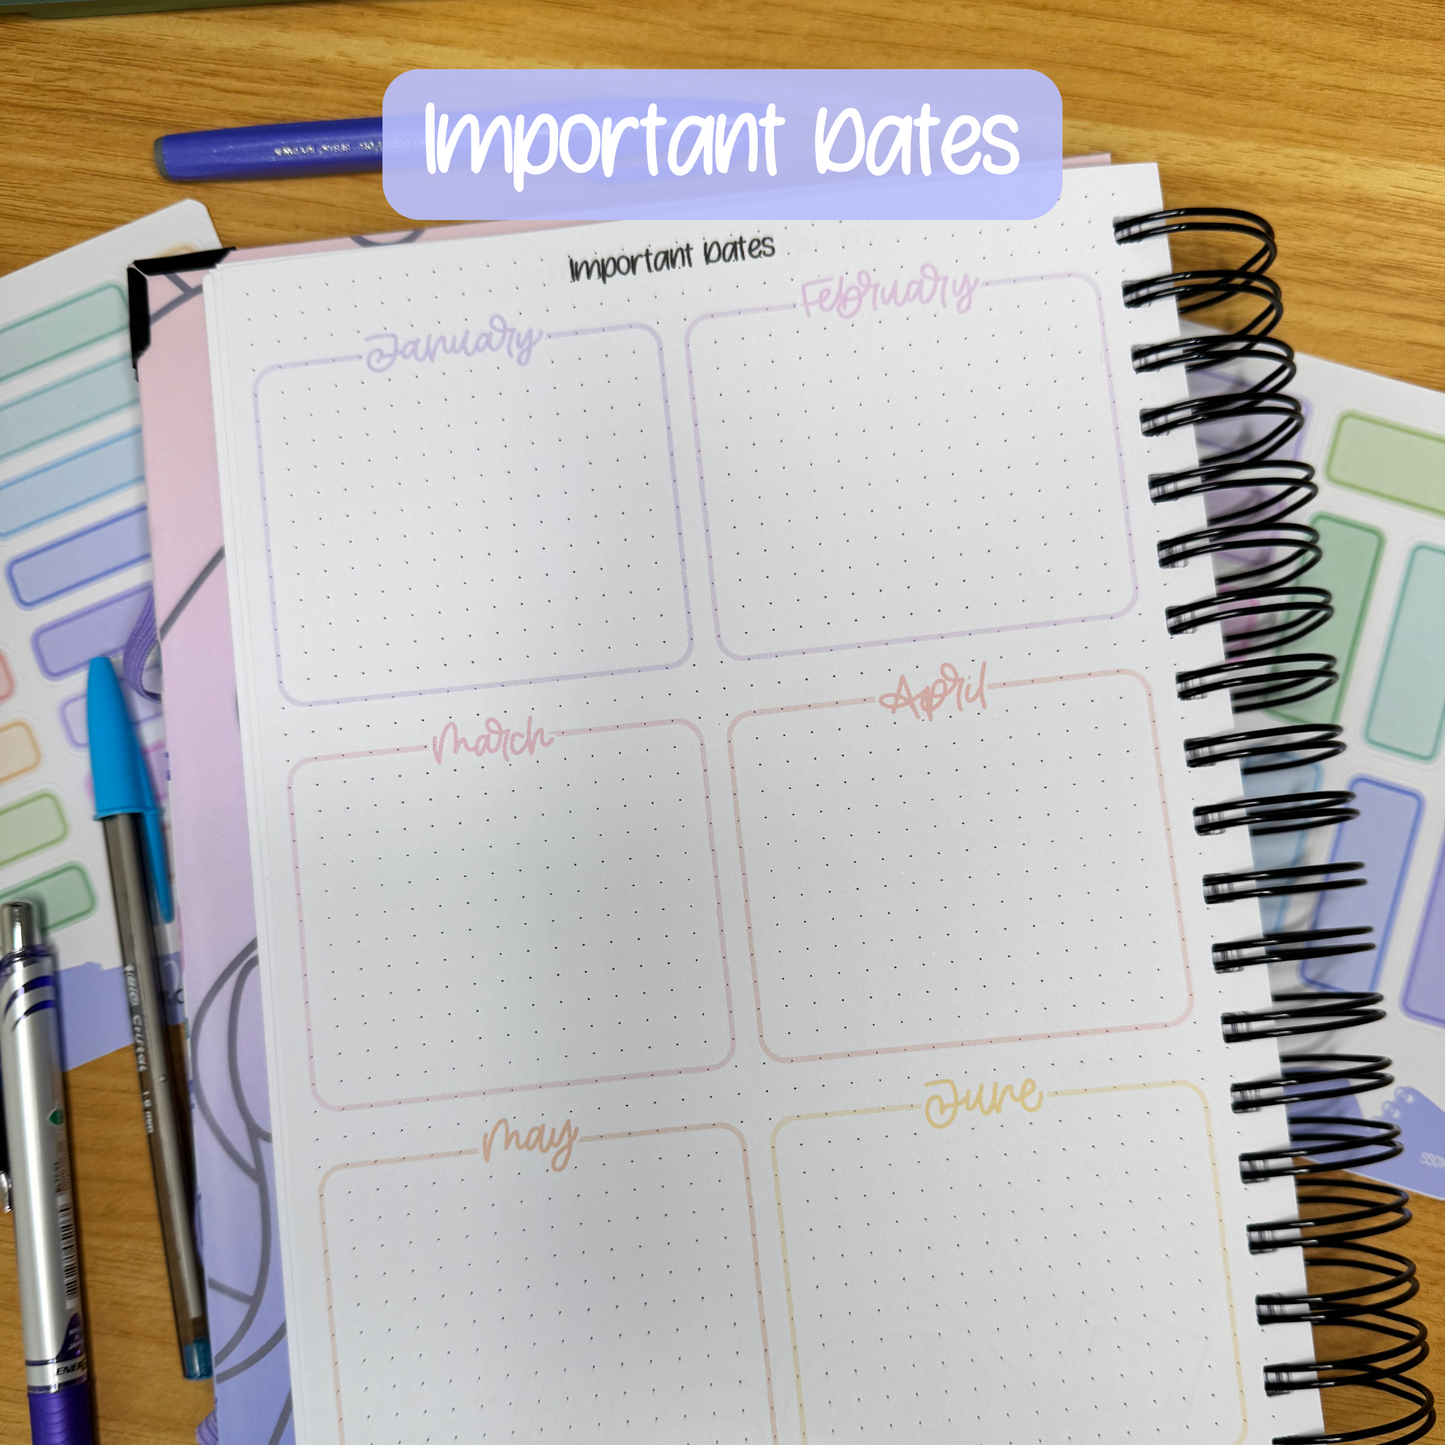 Important Dates
Important Dates
January
February
March
April
May
June
BIC Cristal 1.0mm
ENER